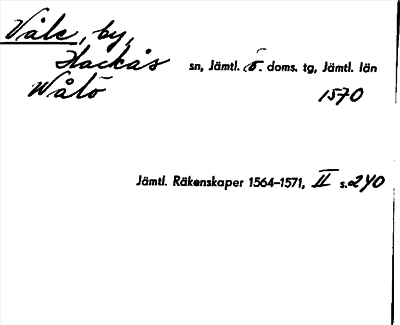 Våle, by,
Hackås sn, Jämtl. ö. doms. tg, Jämtl. län
Wålö 1570
Jämtl. Räkenskaper 1564–1571, II s. 240